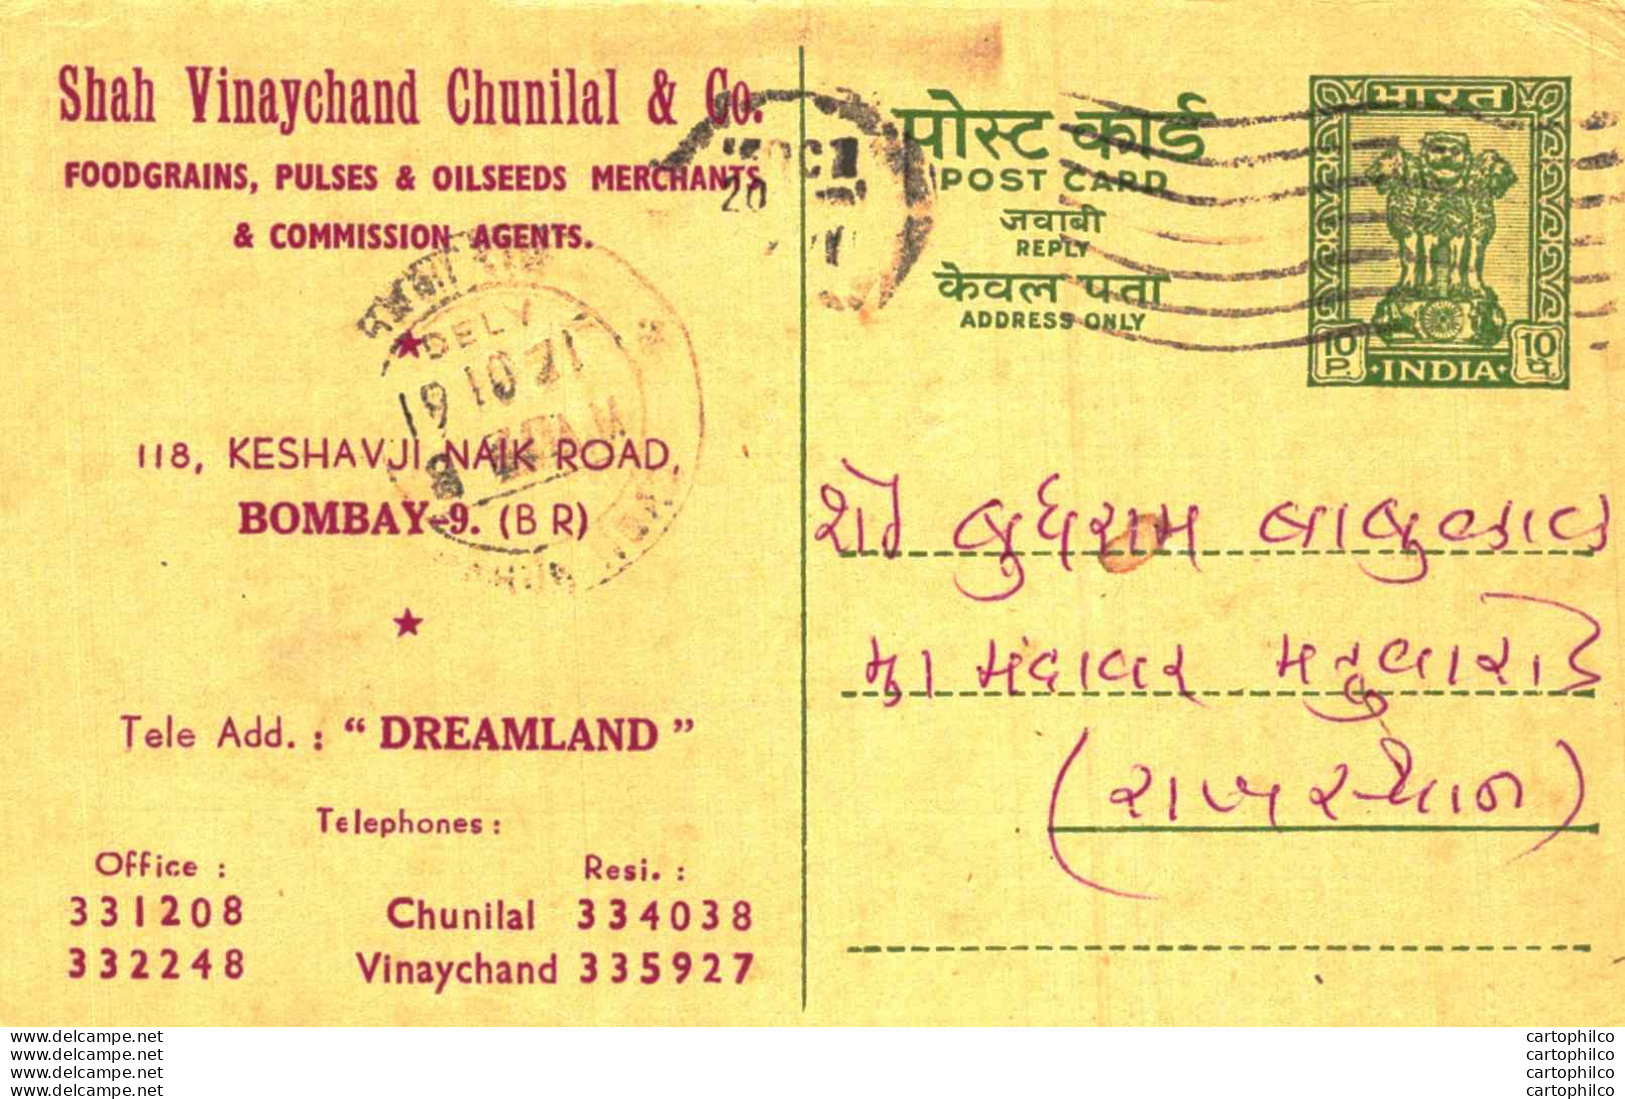 Shah Vinaychand Chunilal & Co.
FOODGRAINS, PULSES & OILSEEDS MERCHANTS
& COMMISSION AGENTS.
118, KESHAVJI NAIK ROAD,
BOMBAY-9. (B R)
Tele Add. : “ DREAMLAND ”
Telephones :
Office : Resi. :
331208 Chunilal 334038
332248 Vinaychand 335927
DELY
19 10 71
20
पोस्ट कार्ड
POST CARD
जवाबी
REPLY
केवल पता
ADDRESS ONLY
भारत
10 P. INDIA 10 पै.
શેઠ બુધરામ બાબુલાલ
મંદાવર
(રાજસ્થાન)
www.delcampe.net
www.delcampe.net
www.delcampe.net
www.delcampe.net
cartophilco
cartophilco
cartophilco
cartophilco